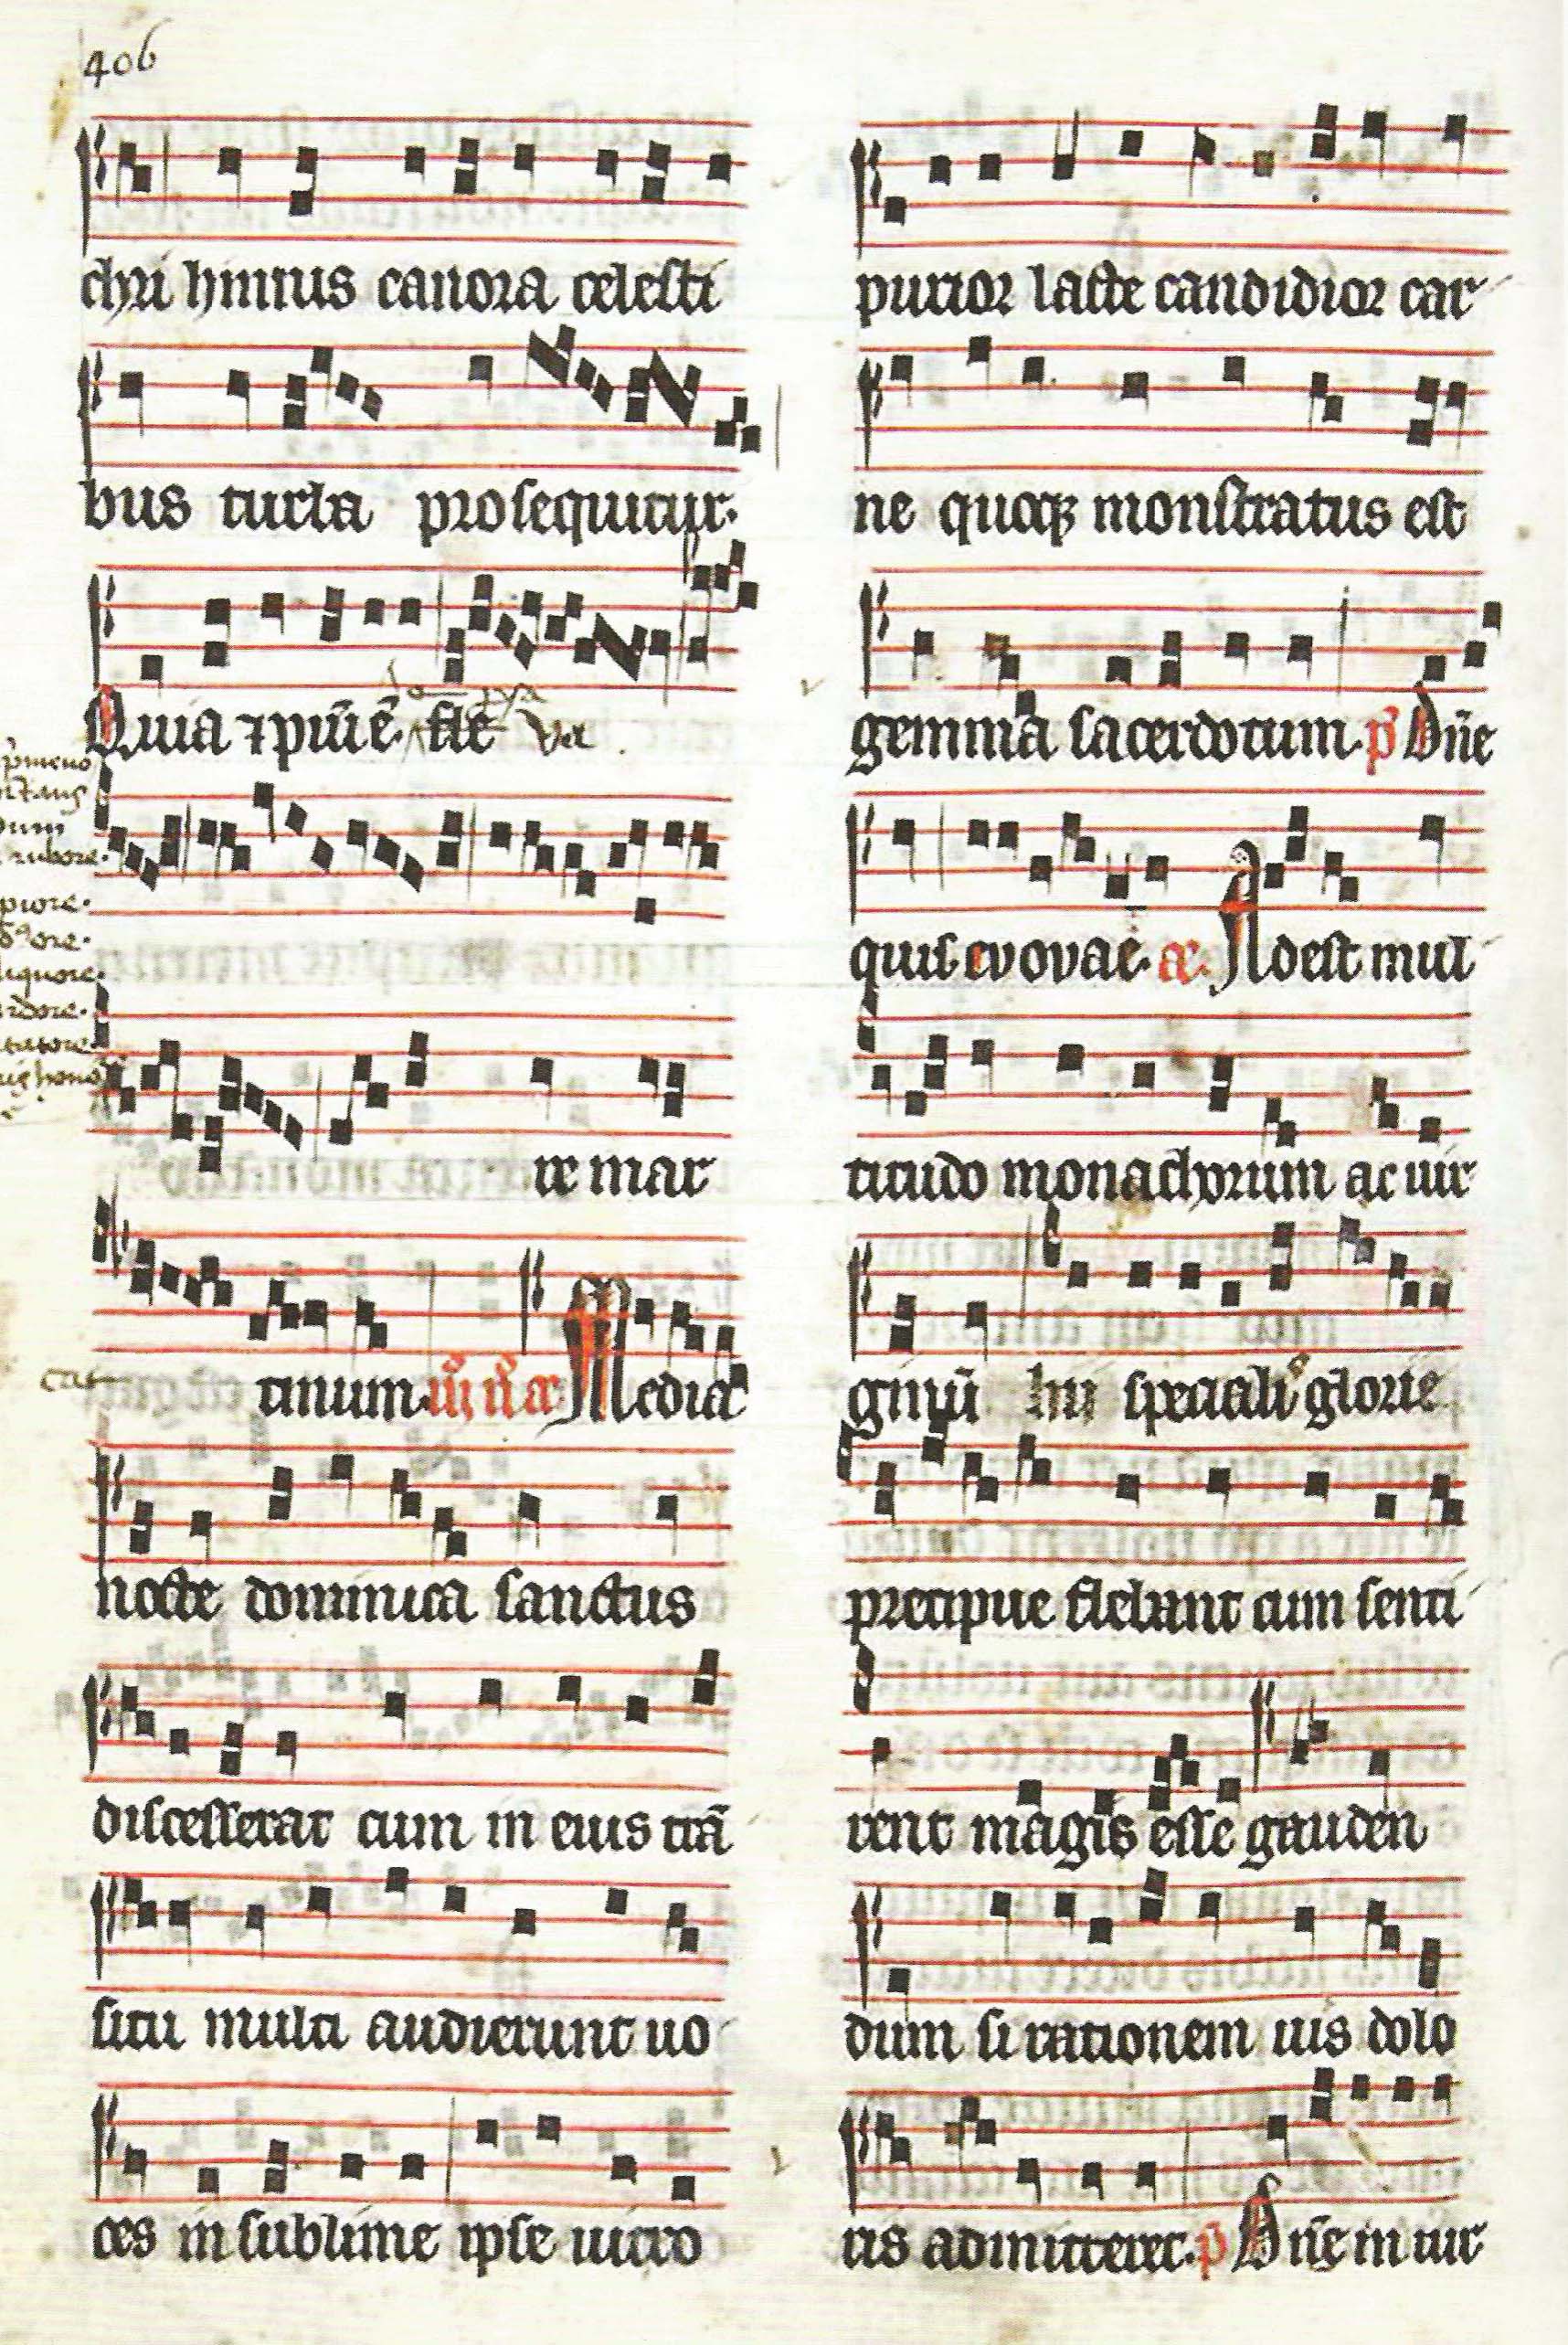 406
chri himnus canora celesti
bus turba prosequitur.
Quia ⁊ piũ ẽ. fle va.
re mar
tinum. Media
nocte dominica sanctus
discesserat cum in eius trã
situ multi audierunt uo
ces in sublime ipse uitro
pmeno
rubore.
piore.
liquore.
purior lacte candidior car
ne quoqz monstratus est
gemma sacerdotum. p̃ Dñe
quis. evovae. ae. Adest mul
titudo monachorum ac uir
ginũ hii speciali glorie
precipue flebant cum senti
rent magis esse gauden
dum si rationem uis dolo
ris admitteret. p̃ Dñe in uir